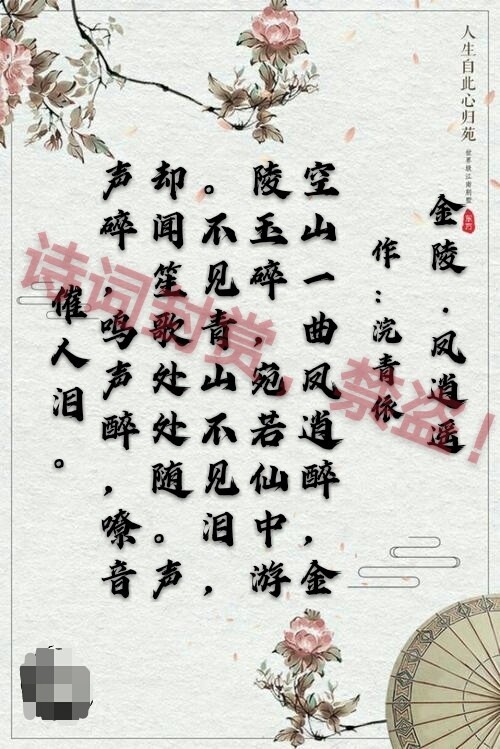 人生自此心归苑
世界级江南别墅
东方
金陵·凤逍遥
作：浣青依
空山一曲凤逍醉，金
陵玉碎，宛若仙中游
。不见青山不见泪，
却闻笙歌处处随。声
声碎，鸣声醉，嘹音
催人泪。
诗词封赏，禁盗！